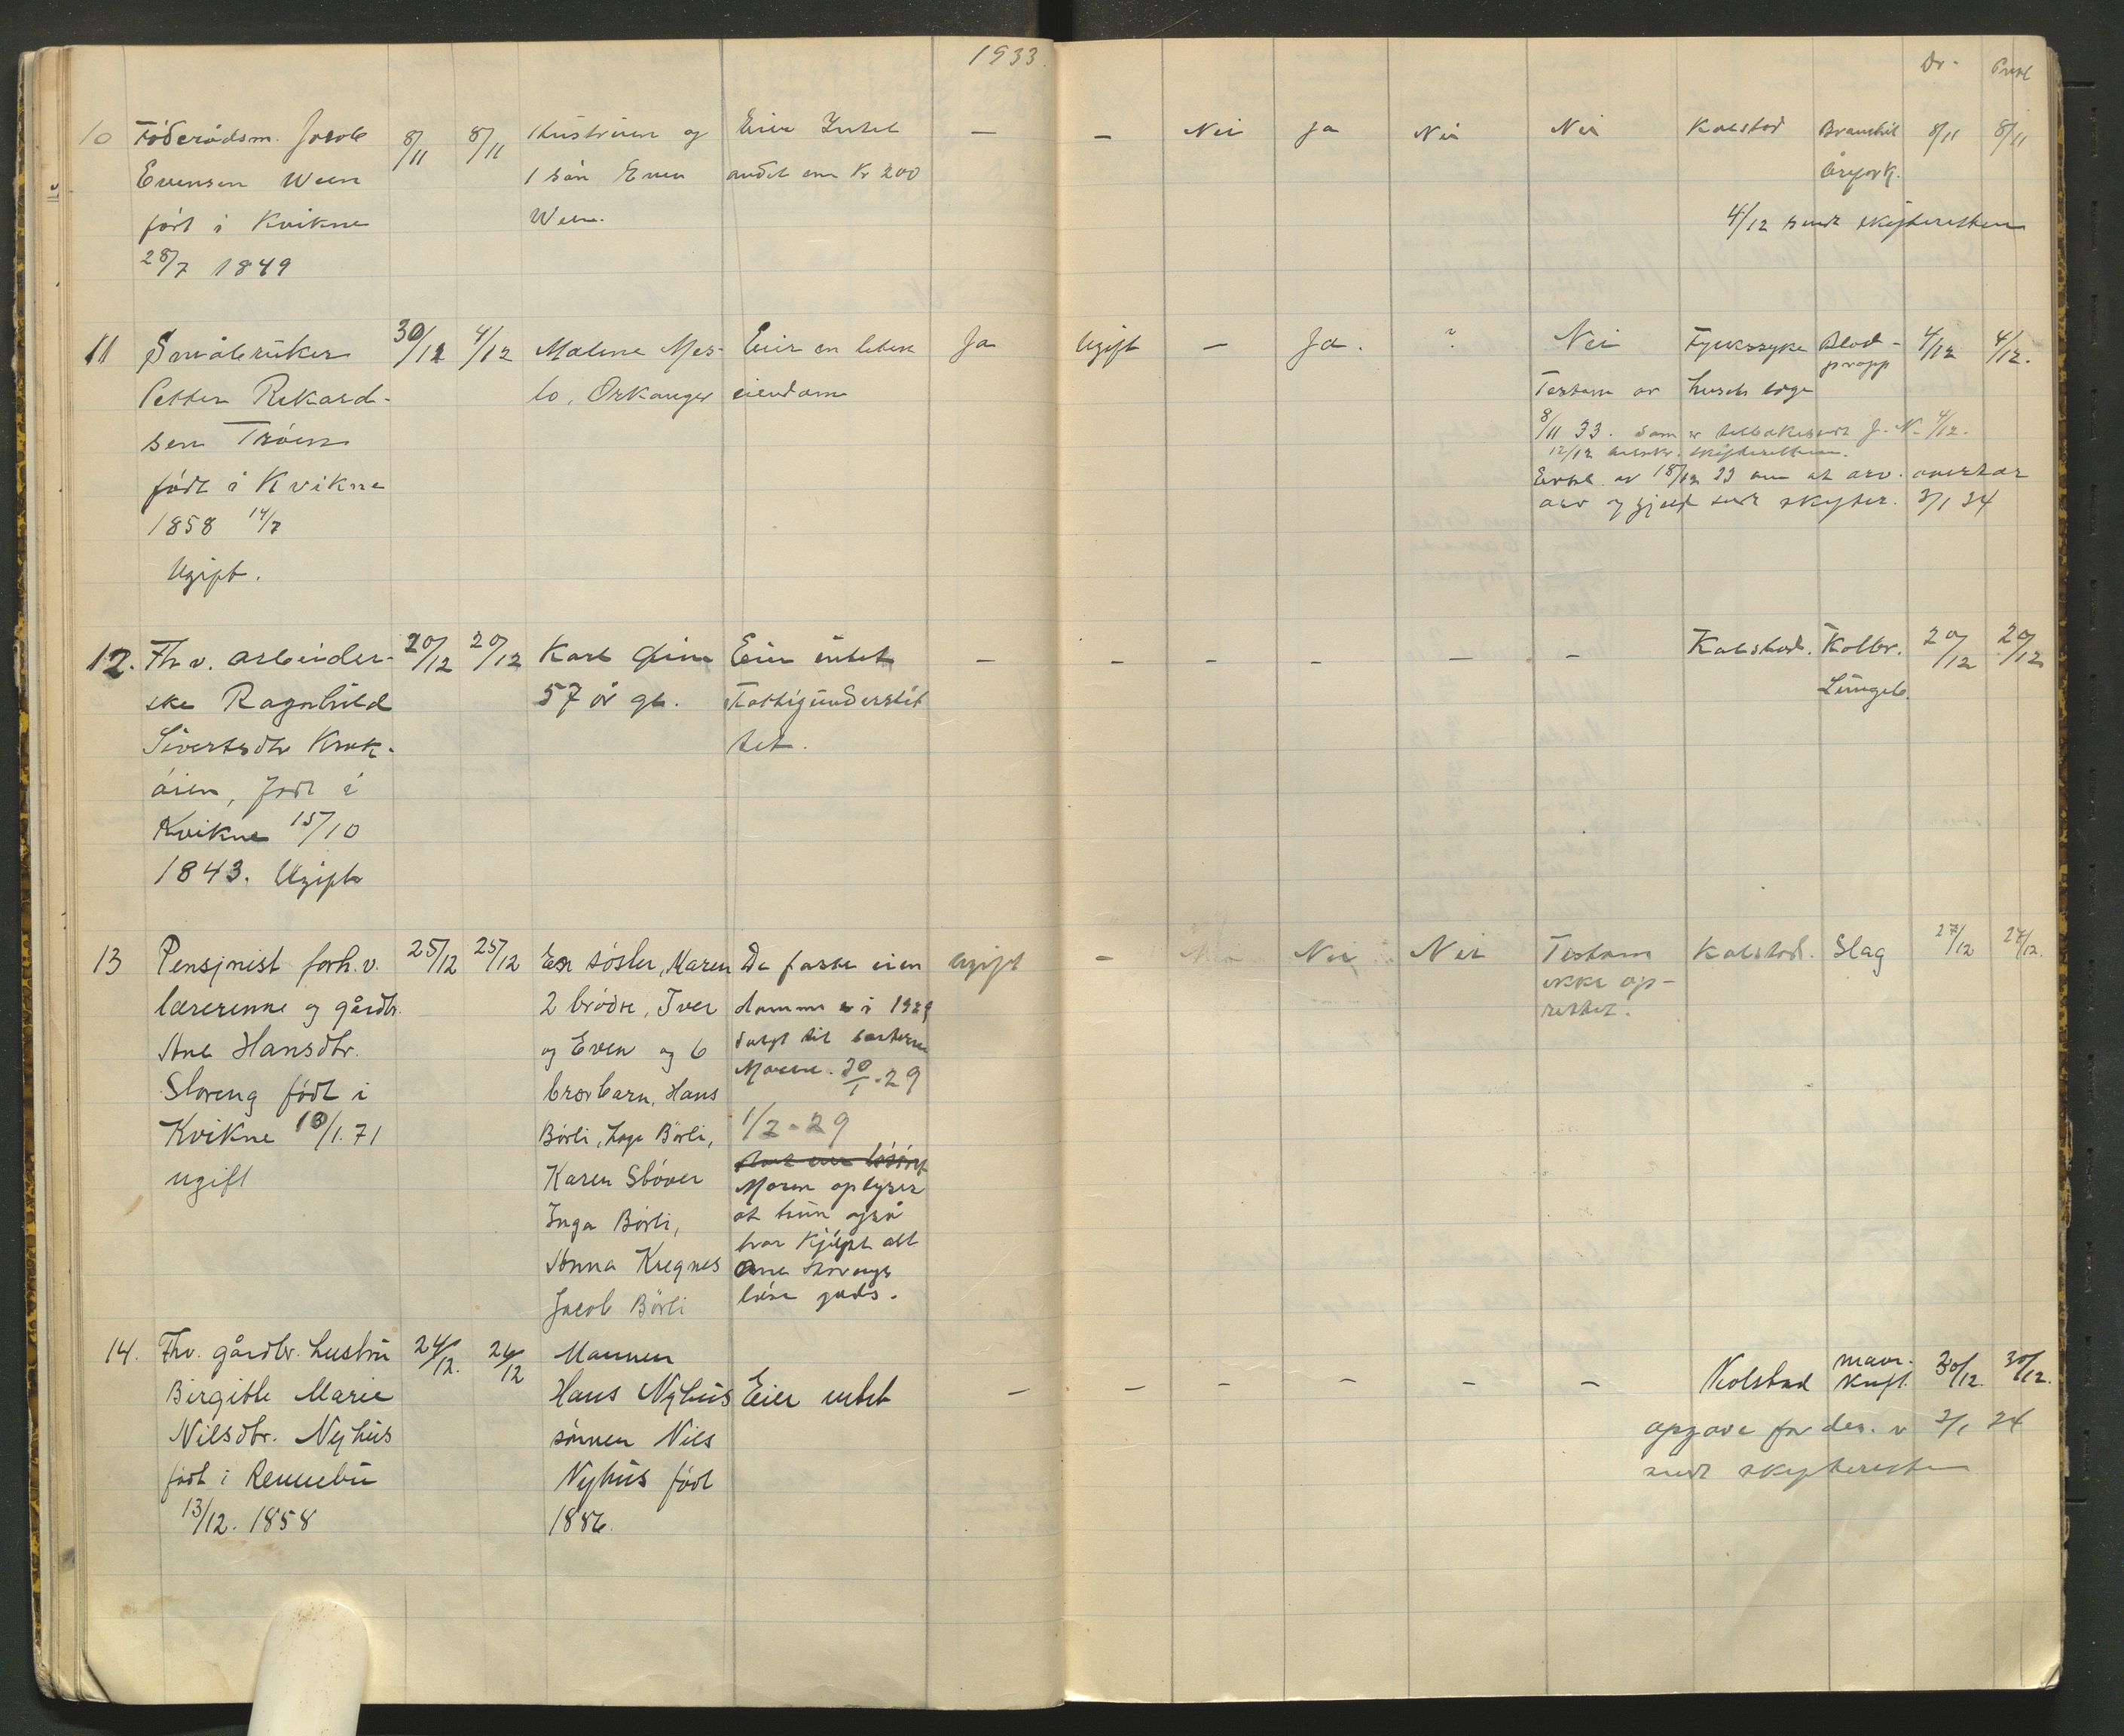 1933.
Dr. Prest
10 Föderådsm. Jacob 8/11 8/11 Hustruen og Eier Intet — — Nei Ja Nei Nei Kolstad Bronchit 8/11 8/11
Evensen Ween 1 sön Even andet enn Kr 200 Årefork.
födt i Kvikne Ween. 4/12 sendt skifteretten
28/7 1849
11 Småbruker 30/12 4/12 Malene Mes- Eier en liten Ja Ugift — Ja. ? Nei Fylkessyke Blod- 4/12 4/12.
propp
Petter Rikard- lo, Orkanger eiendom Testam av husets loge
sen Tröen 8/11 33. som er tilbakesendt J. N. 4/12.
12/12 skifteretten.
födt i Kvikne Erkl. av 18/12 33 om at arv. overtar
1858 14/7 arv og gjeld sendt skifter. 3/1 34
Ugift.
12. Fhv. arbeider- 20/12 20/12 Karl Eier intet — — — — — — Kolstad. Kolbr. 20/12 20/12
ske Ragnhild 57 år gl. Fattigunderstöt Lungeb.
Sivertsdtr Krok- tet.
åien, födt i
Kvikne 15/10
1843. Ugift
13 Pensjnist forh.v. 25/12 25/12 En söster, Maren De faste eien ugift — Nei Nei Nei Testam Kolstad. Slag 27/12 27/12.
lærerinne og gårdbr. 2 brödre, Iver domme er i 1929 ikke op-
Ane Hansdtr. og Even og 6 solgt til søsteren rettet.
Storeng födt i brorbarn, Hans Maren. 30/1-29
Kvikne 18/1.71 Börli, Börli, 1/2-29
ugift Karen Stöver Maren oplyser
Inga Börli, at hun også
Anna Kregnes har kjöpt alt
Jacob Börli Ane Storengs
löse gods.
14. Fhv. gårdbr. hustru 24/12. 24/12 Mannen mave-
Birgitte Marie Hans Nyhus Eier intet — — — — — — Kolstad kreft. 30/12. 30/12.
Nilsdtr. Nyhus sönnen Nils opgave for des. v 3/1 34
födt i Rennebu Nyhus födt sendt skifteretten
13/12. 1858 1886.